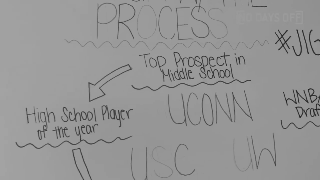 PROCESS
#JIG
Top Prospect in
Middle School
High School Player
of the year
UCONN
WNBA
Draf
USC
UW